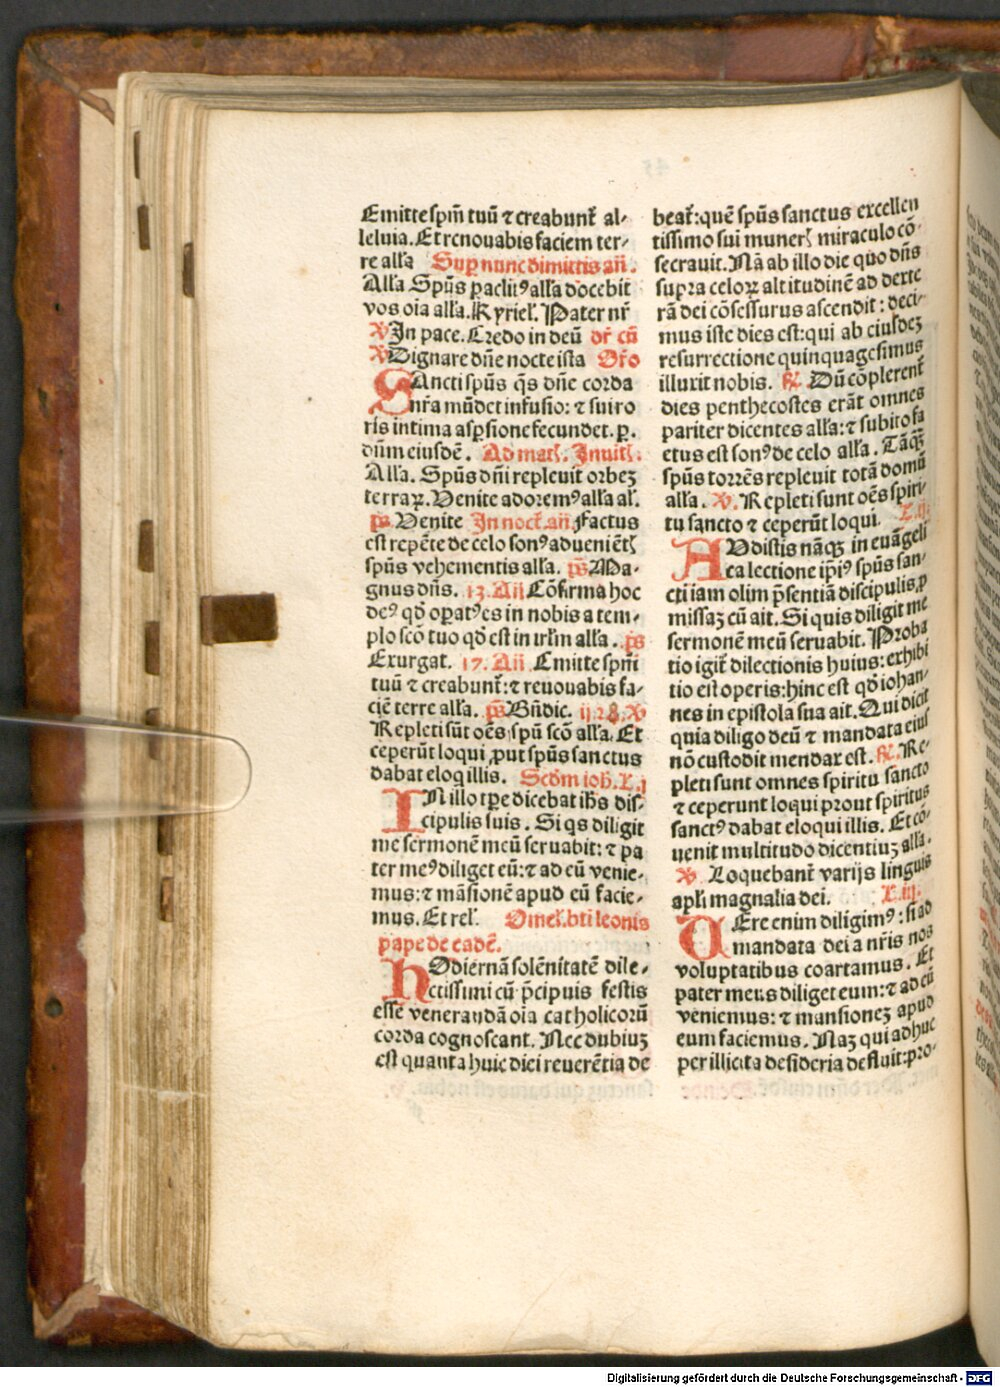 Emitte spm̄ tuū ⁊ creabunt᷑ al-
leluia. Et renouabis faciem ter-
re all'a Sup̱ nunc dimittis añ.
All'a Spūs p̱aclitꝰ all'a docebit
vos oīa all'a. Kyriel'. Pater nr̄
℣ In pace. Credo in deū dr̄ cū
℣ Dignare dn̄e nocte ista Or̄o
SAncti spūs q̄s dn̄e corda
nr̄a mūdet infusio: ⁊ sui ro
ris intima asp̱sione fecundet. p̱.
dn̄m eiusdē. Ad mat᷑. Inuit᷑.
All'a. Spūs dn̄i repleuit orbeꝫ
terraꝝ. Venite adoremꝰ all'a al'.
ps̄ Venite In noct᷑. añ Factus
est repēte de celo sonꝰ adueniēt᷑
spūs vehementis all'a. ps̄ Ma-
gnus dn̄s. 13. Añ Cōfirma hoc
deꝰ qd̄ opatꝰ es in nobis a tem-
plo scō tuo qd̄ est in irl'm all'a. ps̄
Exurgat. 17. Añ Emitte spm̄
tuū ⁊ creabunt᷑: ⁊ reuouabis fa-
ciē terre all'a. ps̄ Bn̄dic. ij 28. ℣
Repleti sūt oēs spū scō all'a. Et
ceperūt loqui ꝓut spūs sanctus
dabat eloq̄ illis. Scd̄m ioh̄. L. j
IN illo tp̱e dicebat ih̄s dis-
cipulis suis. Si q̄s diligit
me sermonē meū seruabit: ⁊ pa
ter meꝰ diliget eū: ⁊ ad eū venie-
mus: ⁊ māsionē apud eū facie-
mus. Et rel'. Omel'. bt̄i leonis
pape de eadē.
hOdiernā solēnitatē dile-
ctissimi cū p̄cipuis festis
esse venerandā oīa catholicorū
corda cognoscant. Nec dubiuꝫ
est quanta huic diei reuerētia de
beat᷑: quē spūs sanctus excellen
tissimo sui muner᷑ miraculo cō-
secrauit. Nā ab illo die quo dn̄s
supra celoꝝ altitudinē ad dexte
rā dei cōsessurus ascendit: deci-
mus iste dies est: qui ab eiusdeꝫ
resurrectione quinquagesimus
illuxit nobis. ℟. Dū cōplerent᷑
dies penthecostes erāt omnes
pariter dicentes all'a: ⁊ subito fa
ctus est sonꝰ de celo all'a. Tāq̄ꝫ
spūs torrēs repleuit totā domū
all'a. ℣. Repleti sunt oēs spiri-
tu sancto ⁊ ceperūt loqui. L. ij.
AVdistis nāqꝫ in euāgeli
ca lectione ip̄iꝰ spūs san-
cti iam olim p̄sentiā discipulis ꝓ
missaꝫ cū ait. Si quis diligit me
sermonē meū seruabit. Proba
tio igit᷑ dilectionis huius: exhibi
tio est operis: hinc est qd̄ iohan-
nes in epistola sua ait. Qui dicit
quia diligo deū ⁊ mandata eius
nō custodit mendax est. ℟. Re-
pleti sunt omnes spiritu sancto
⁊ ceperunt loqui prout spiritus
sanctꝰ dabat eloqui illis. Et cō-
uenit multitudo dicentiuꝫ all'a.
℣. Loquebant᷑ varijs linguis
apl'i magnalia dei. L. iij.
UEre enim diligimꝰ: si ad
mandata dei a nr̄is nos
voluptatibus coartamus. Et
pater meus diliget eum: ⁊ ad eū
veniemus: ⁊ mansioneꝫ apud
eum faciemus. Naꝫ qui adhuc
per illicita desideria defluit: pro-
Digitalisierung gefördert durch die Deutsche Forschungsgemeinschaft - DFG